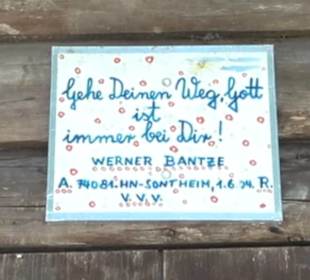 Gehe Deinen Weg, Gott
ist
immer bei Dir!
WERNER BANTZE
A. 74081.HN-SONTHEIM, 1.6 74. R.
V.V.V.